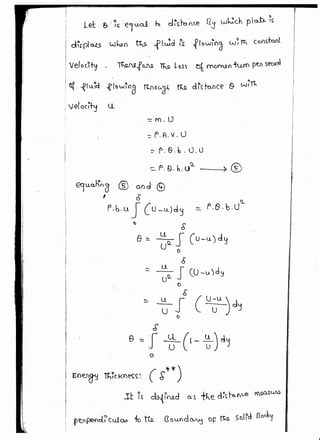 Let θ is equal to distance by which plate is
displaced when the fluid is flowing with constant
Velocity. Therefore The Loss of momentum per second
of fluid flowing through the distance θ with
velocity U
= m. U
= ρ.A.v.U
= ρ.θ.b.U.U
= ρ.θ.b.U² ⟶ ⑤
equating ⑤ and ④
ρ.b.u ∫₀^δ (U-u)dy = ρ.θ.b.U²
θ = u/U² ∫₀^δ (U-u)dy
= u/U² ∫₀^δ (U-u)dy
= u/U ∫₀^δ ((U-u)/U) dy
θ = ∫₀^δ u/U (1 - u/U) dy
Energy Thickness: (δ**)
It is defined as the distance measure
perpendicular to the Boundary of the Solid Body